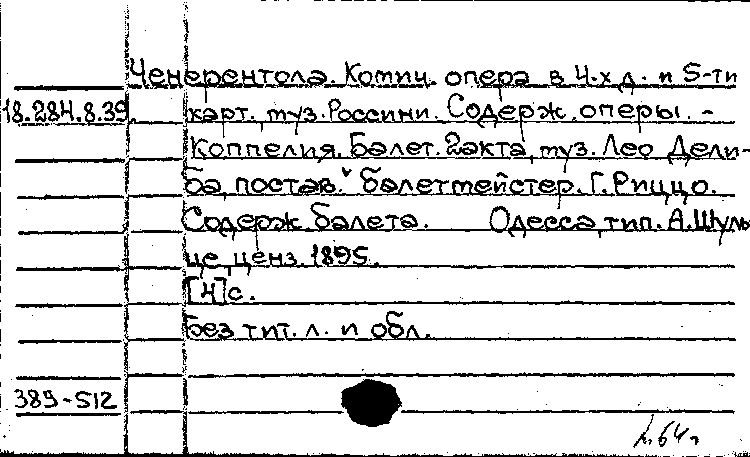 Ченерентола. Комич. опера в 4-х д. и 5-ти
18.284.8.39. карт., муз. Россини. Содерж. оперы. -
Коппелия. Балет. 2 акта, муз. Лео Дели-
ба, постав. балетмейстер. Г. Риццо.
Содерж. балета. Одесса, тип. А. Шуль-
це, ценз. 1895.
[4] с.
Без тит. л. и обл.
389-512